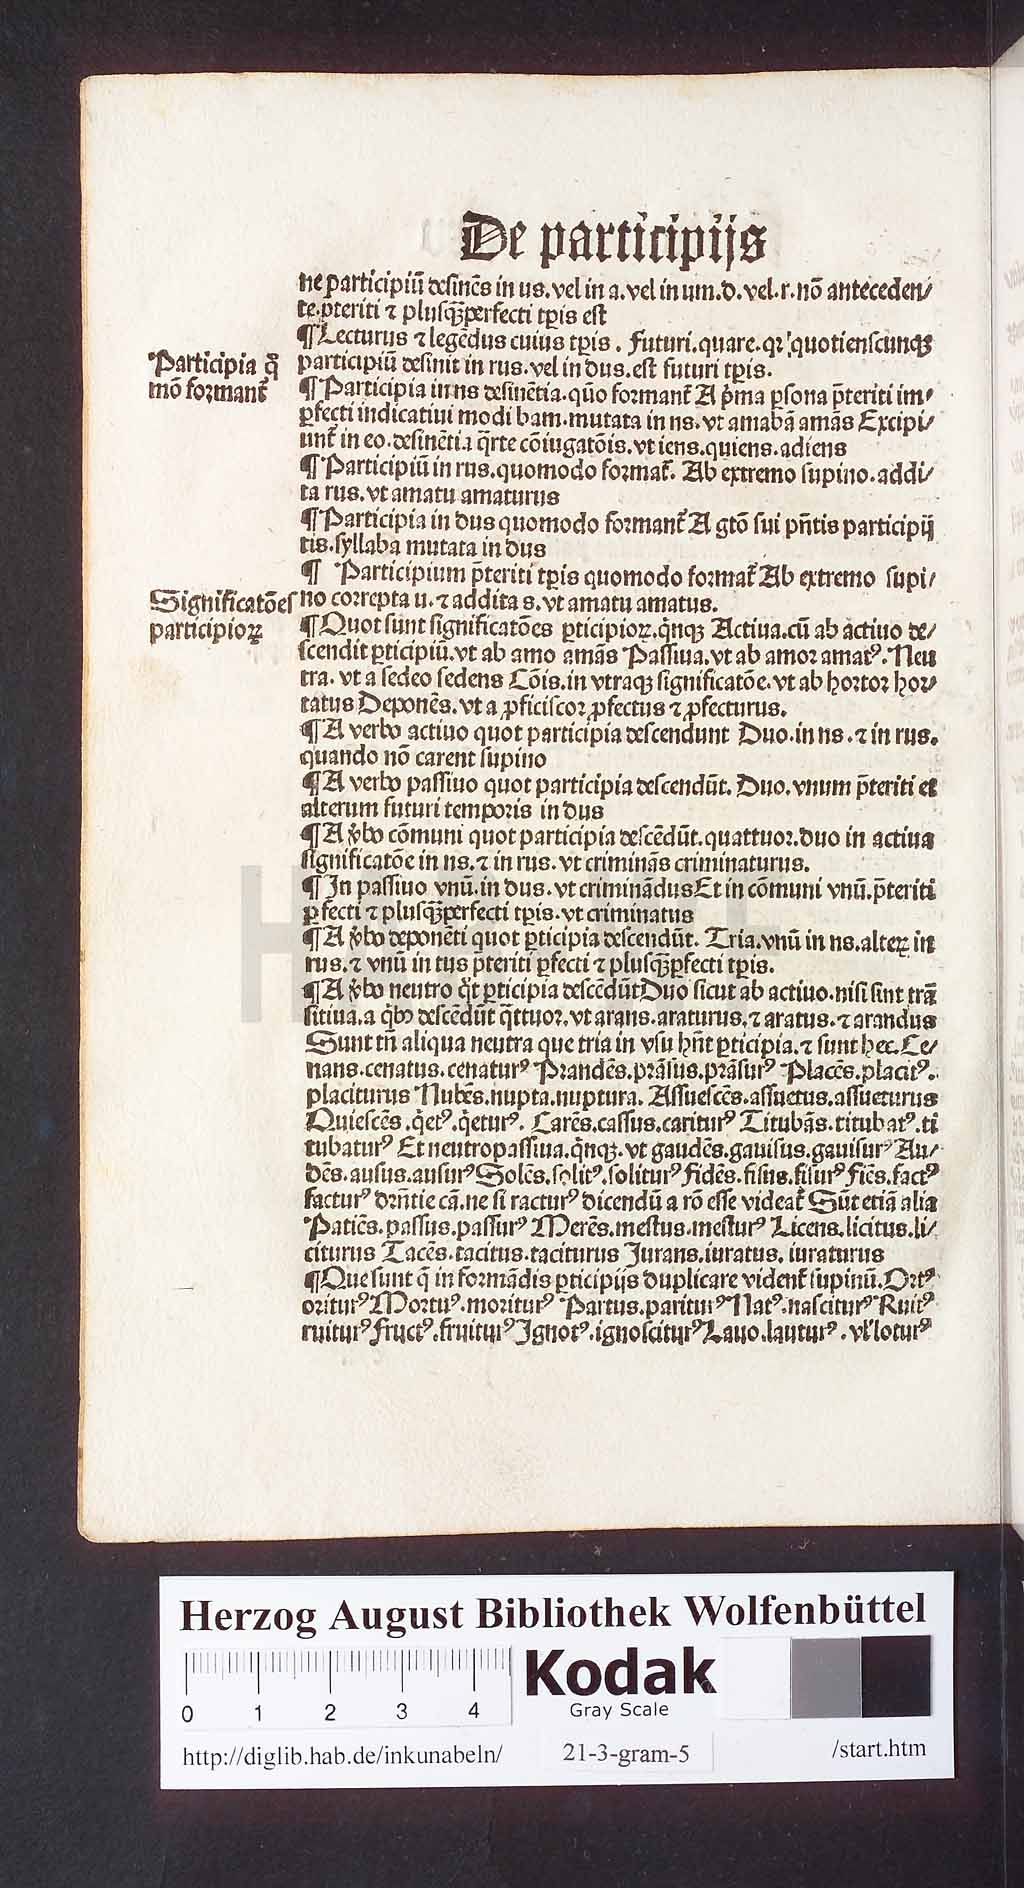 De participijs
ne participiū desinēs in us. vel in a. vel in um. d. vel. r. nō anteceden⸗
te. p̄teriti ⁊ plusq̄ꝫperfecti tp̄is est
¶ Lecturus ⁊ legēdus cuius tp̄is. Futuri. quare. qꝛ quotienscunqꝫ
participiū desinit in rus. vel in dus. est futuri tp̄is.
Participia q̊
mō formant᷑
¶ Participia in ns desinētia. quō formant᷑ A p̄ma ꝑsona p̄teriti im⸗
ꝑfecti indicatiui modi bam. mutata in ns. vt amabā amās Excipi⸗
unt᷑ in eo. desinētia q̄rte cōiugatōis. vt iens. quiens. adiens
¶ Participiū in rus. quomodo format᷑. Ab extremo supino. addi⸗
ta rus. vt amatu amaturus
¶ Participia in dus quomodo formant᷑ A gtō sui pn̄tis participij
tis. syllaba mutata in dus
¶ Participium p̄teriti tp̄is quomodo format᷑ Ab extremo supi⸗
no correpta u. ⁊ addita s. vt amatu amatus.
Significatōes
participioꝝ
¶ Quot sunt significatōes ꝑticipioꝝ. q̇nqꝫ Actiua. cū ab actiuo de⸗
scendit ꝑticipiū. vt ab amo amās Passiua. vt ab amor amatꝰ. Neu
tra. vt a sedeo sedens Cōis. in vtraqꝫ significatōe. vt ab hortor hor⸗
tatus Deponēs. vt a ꝓficiscor ꝓfectus ⁊ ꝓfecturus.
¶ A verbo actiuo quot participia descendunt Duo. in ns. ⁊ in rus.
quando nō carent supino
¶ A verbo passiuo quot participia descendūt. Duo. vnum p̄teriti et
alterum futuri temporis in dus
¶ A v̇bo cōmuni quot participia descēdūt. quattuor. duo in actiua
significatōe in ns. ⁊ in rus. vt criminās criminaturus.
¶ In passiuo vnū. in dus. vt criminādus Et in cōmuni vnū. p̄teriti
ꝑfecti ⁊ plusq̄ꝫperfecti tp̄is. vt criminatus
¶ A v̇bo deponēti quot ꝑticipia descendūt. Tria. vnū in ns. alteꝝ in
rus. ⁊ vnū in tus p̄teriti ꝑfecti ⁊ plusq̄ꝫꝑfecti tp̄is.
¶ A v̇bo neutro q̊t ꝑticipia descēdūt Duo sicut ab actiuo. nisi sint trā
sitiua. a q̇bꝰ descēdūt q̄ttuor. vt arans. araturus. ⁊ aratus. ⁊ arandus
Sunt tn̄ aliqua neutra que tria in vsu hn̄t ꝑticipia. ⁊ sunt hec. Ce⸗
nans. cenatus. cenaturꝰ Prandēs. prāsus. prāsurꝰ Placēs. placitꝰ.
placiturus Nubēs. nupta. nuptura. Assuescēs. assuetus. assueturus
Quiescēs. q̇etꝰ. q̇eturꝰ. Carēs. cassus. cariturꝰ Titubās. titubatꝰ. ti
tubaturꝰ Et neutropassiua. q̇nqꝫ. vt gaudēs. gauisus. gauisurꝰ Au⸗
dēs. ausus. ausurꝰ Solēs. solitꝰ. soliturꝰ Fidēs. fisus. fisurꝰ Fiēs. factꝰ
facturꝰ dr̄ntie cā. ne si racturꝰ dicendū a rō esse videat᷑ Sūt etiā alia
Patiēs. passus. passurꝰ Merēs. mestus. mesturꝰ Licens. licitus. li⸗
citurus Tacēs. tacitus. taciturus Jurans. iuratus. iuraturus
¶ Que sunt q̄ in formādis ꝑticipijs duplicare vident᷑ supinū. Ortꝰ
oriturꝰ Mortuꝰ. moriturꝰ Partus. pariturꝰ Natꝰ. nasciturꝰ Ruitꝰ
ruiturꝰ Fructꝰ. fruiturꝰ Ignotꝰ. ignosciturꝰ Lauo. lauturꝰ. vl' loturꝰ
HAB
Herzog August Bibliothek Wolfenbüttel
0 1 2 3 4
Kodak
Gray Scale
http://diglib.hab.de/inkunabeln/
21-3-gram-5
/start.htm